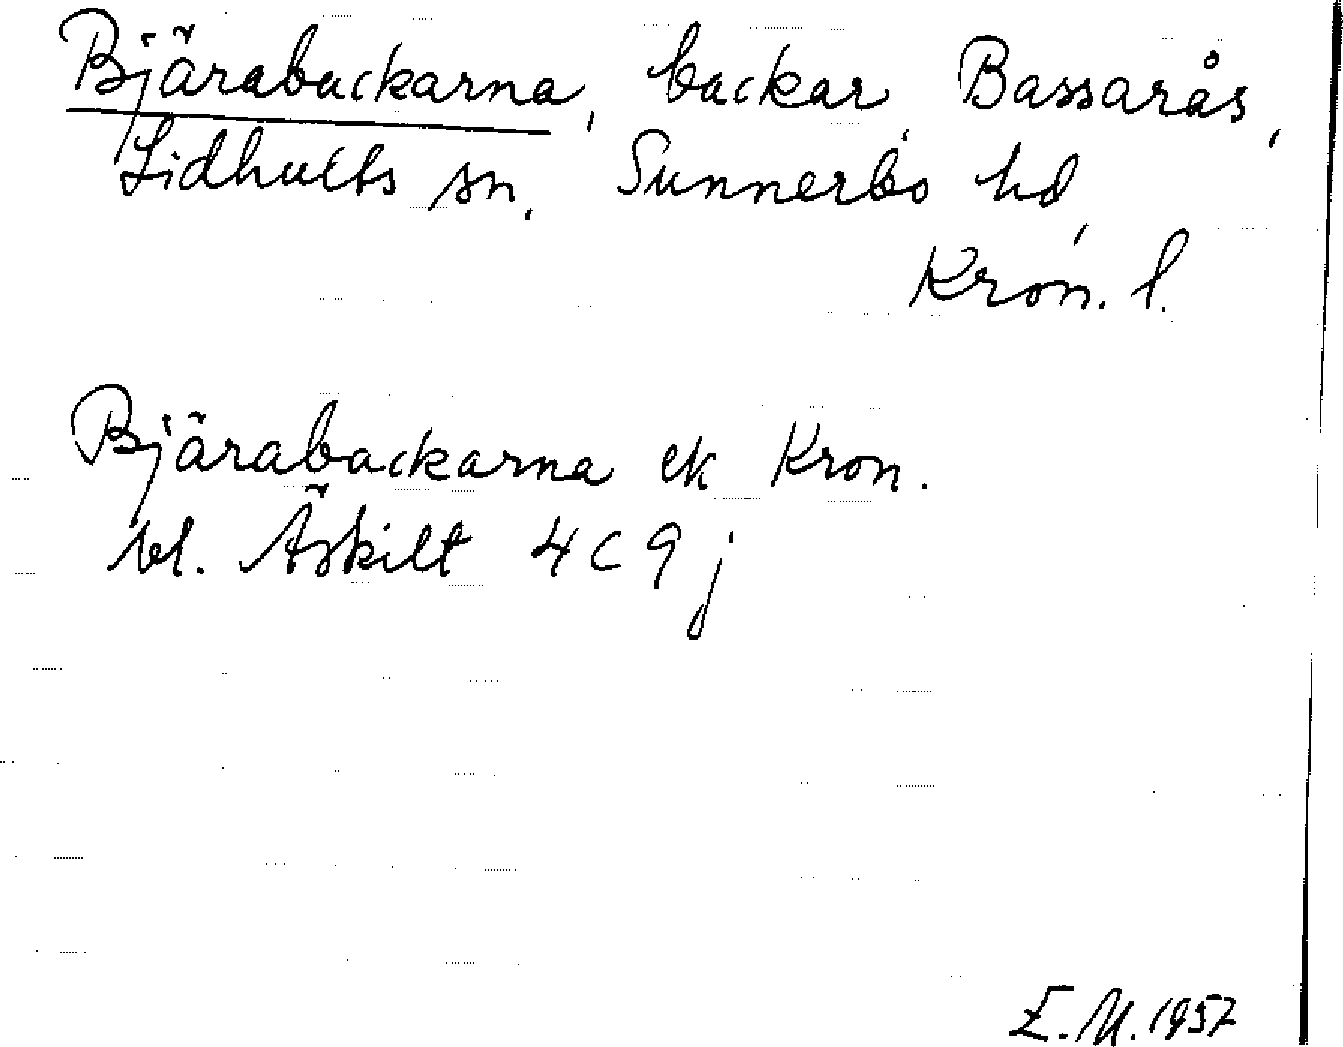 Bjärabackarna, backar, Bassarås,
Lidhults sn, Sunnerbo hd,
Kron. l.
Bjärabackarna ek Kron.
bl. Äskilt 4 C 9 j
E.M. 1957